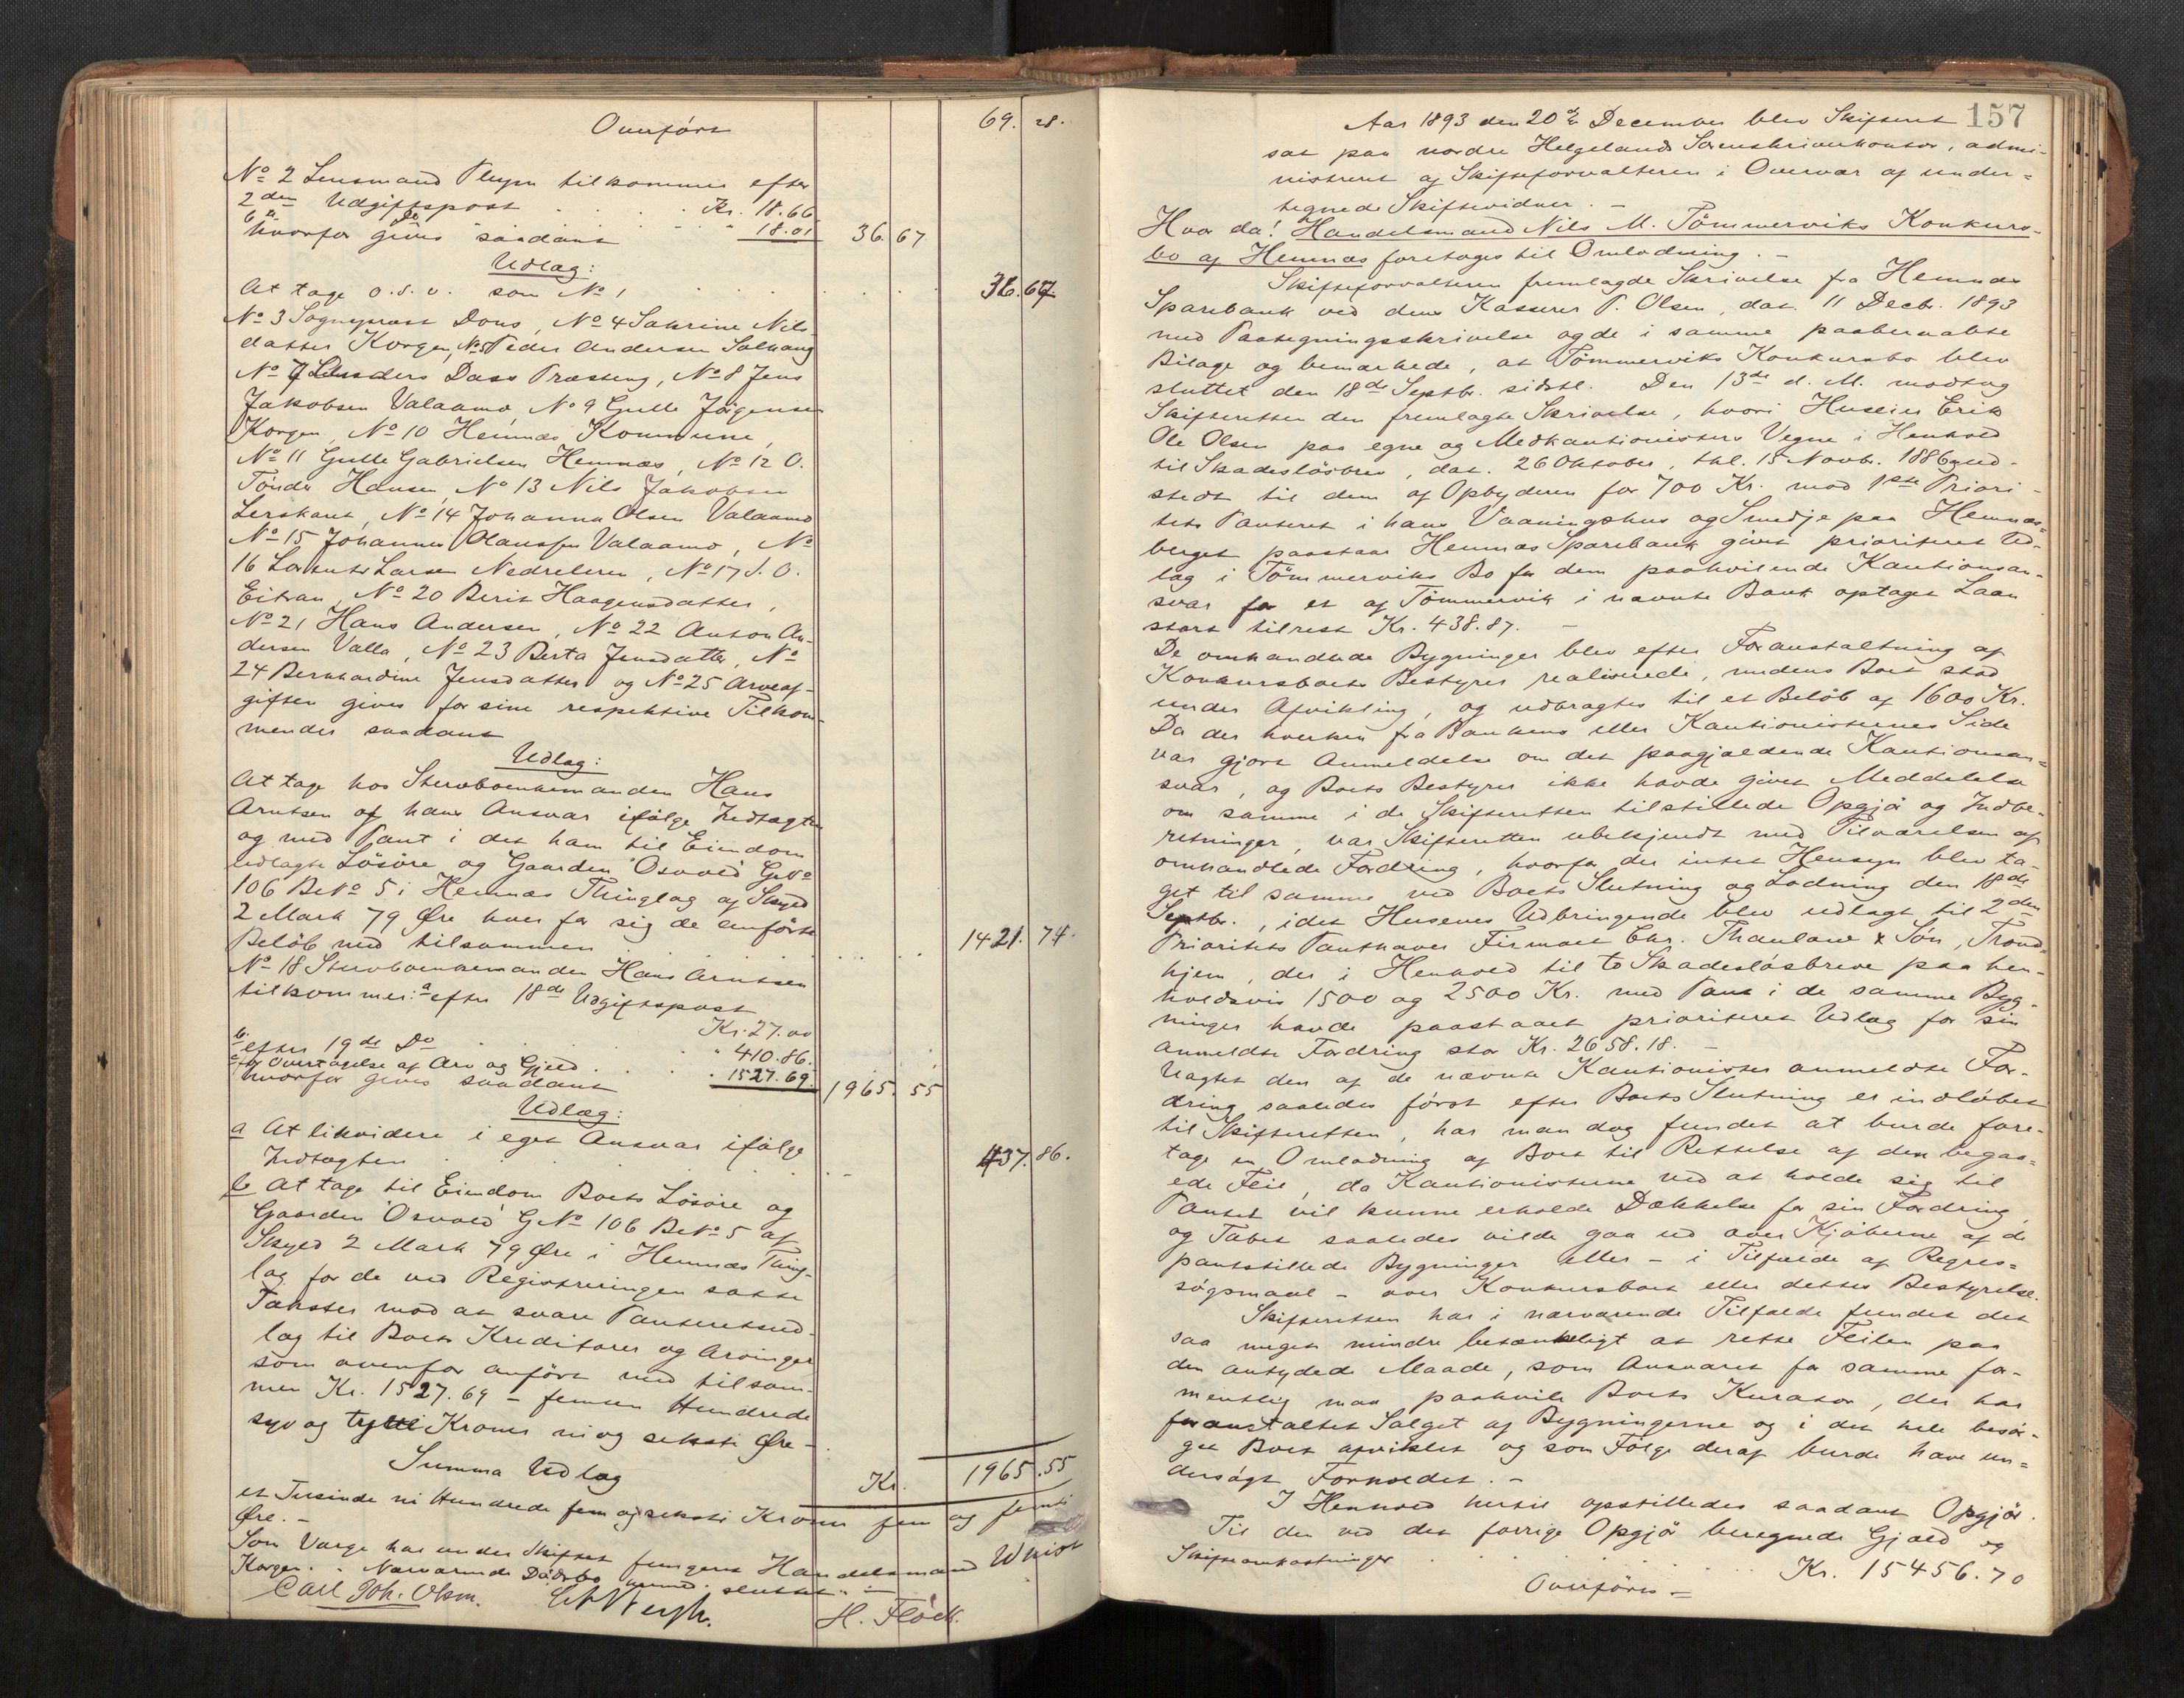 Overført 69. 28.
No 2 Lensmand Pleym tilkommer efter
2den Udgiftspost . . . . Kr. 18.66
6te Do . . . . " 18.01
hvorfor gives saadant 36. 67
Udlæg:
At tage o.s.v. som No 1 . . . . 36.67
No 3 Sogneprest Dons, No 4 Sakrine Nils-
datter Korgen, No 5 Peder Andersen Solhaug
No 7 Dass Præsteng, No 8 Jens
Jakobsen Valaamo, No 9 Gulle Jørgensen
Korgen, No 10 Hemnæs Kommune,
No 11 Gulle Gabrielsen Hemnæs, No 12 O.
Tønder Hansen, No 13 Nils Jakobsen
Lerskaret, No 14 Johanna Olsen Valaamo
No 15 Johannes Olaussen Valaamo, No
16 Larsen Nedreleren, No 17 J. O.
Eitran, No 20 Berit Haagensdatter,
No 21 Hans Andersen, No 22 Anton An-
dersen Valla, No 23 Berta Jensdatter, No
24 Bernhardine Jensdatter og No 25 Arveaf-
giften gives for sine respektive Tilkom-
mender saadant
Udlæg:
At tage hos Stervboenkemanden Hans
Arntsen af hans Ansvar ifølge Indtægten
og med Pant i det ham til Eiendom
udlagte Løsøre og Gaarden Osvold GNo
106 BNo 5 i Hemnæs Thinglag af Skyld
2 Mark 79 Øre hver for sig de anførte
Beløb med tilsammen . . . . 1421. 74.
No 18 Stervboenkemanden Hans Arntsen
tilkommer: a efter 18de Udgiftspost
Kr. 27.00
b. efter 19de Do . . . . " 410.86.
c for Overtagelse af Arv og Gjeld . . . . " 1527.69.
hvorfor gives saadant 1965. 55
Udlæg:
a At likvidere i eget Ansvar ifølge
Indtægten . . . . 437. 86.
b At tage til Eiendom Boets Løsøre og
Gaarden Osvold GNo 106 BNo 5 af
Skyld 2 Mark 79 Øre i Hemnæs Ting-
lag for de ved Registreringen satte
Takster mod at svare Panteretsud-
læg til Boets Kreditorer og Arvinger
som ovenfor anført med tilsam-
men Kr. 1527.69 - femten Hundrede
syv og tyve Kroner ni og seksti Øre -
Summa Udlæg Kr. 1965.55
et Tusinde ni Hundrede fem og seksti Kroner fem og femti
Øre. -
Som Værge har under Skiftet fungeret Handelsmand Whist
Korgen. - Nærværende Dødsbo sluttet. -
Carl Joh. Olsen. H. Fløck.
157
Aar 1893 den 20de December blev Skifteret
sat paa nordre Helgelands Sorenskriverkontor, admi-
nistreret af Skifteforvalteren i Overvær af under-
tegnede Skiftevidner. -
Hvor da! Handelsmand Nils M. Tømmerviks Konkurs-
bo af Hemnæs foretages til Omlodning. -
Skifteforvalteren fremlagde Skrivelse fra Hemnæs
Sparebank ved dens Kasserer P. Olsen, dat. 11 Decbr. 1893
med Paategningsskrivelse og de i samme paaberaabte
Bilage og bemærkede, at Tømmerviks Konkursbo blev
sluttet den 18de Septbr. sidstl. Den 13de d. M. modtog
Skifteretten den fremlagte Skrivelse, hvori Huseier Erik
Ole Olsen paa egne og Medkautionisters Vegne i Henhold
til Skadesløsbrev, dat. 26 Oktober, thl. 15 Novbr. 1886, ud-
stedt til dem af Opbyderen for 700 Kr. mod 1ste Priori-
tets Panteret i hans Vaaningshus og Smedje paa Hemnæs-
berget paastaar Hemnæs Sparebank givet prioriteret Ud-
læg i Tømmerviks Bo for dem paahvilende Kautionsan-
svar for et af Tømmervik i nævnte Bank optaget Laan
stort tilrest Kr. 438.87. -
De omhandlede Bygninger blev efter Foranstaltning af
Konkursboets Bestyrer realiserede, medens Boet stod
under Afvikling, og udbragtes til et Beløb af 1600 Kr.
Da der hverken fra Bankens eller Kautionisternes Side
var gjort Anmeldelse om det paagjældende Kautionsan-
svar, og Boets Bestyrer ikke havde givet Meddelelse
om samme i de Skifteretten tilstillede Opgjør og Indbe-
retninger, var Skifteretten ubekjendt med Tilværelsen af
omhandlede Fordring, hvorfor der intet Hensyn blev ta-
get til samme ved Boets Slutning og Lodning den 18de
Septbr., idet Husenes Udbringende blev udlagt til 2den
Prioritets Panthaver Firmaet Chr. Thaulow & Søn, Trond-
hjem, der i Henhold til to Skadesløsbreve paa hen-
holdsvis 1500 og 2500 Kr. med Pant i de samme Byg-
ninger havde paastaaet prioriteret Udlæg for sin
anmeldte Fordring stor Kr. 2658.18. -
Uagtet den af de nævnte Kautionister anmeldte For-
dring saaledes først efter Boets Slutning er indløbet
til Skifteretten, har man dog fundet at burde fore-
tage en Omlodning af Boet til Rettelse af den begaa-
ede Feil, da Kautionisterne ved at holde sig til
Pantet vil kunne erholde Dækkelse for sin Fordring,
og Tabet saaledes vilde gaa ud over Kjøberne af de
pantstillede Bygninger eller - i Tilfælde af Regres-
søgsmaal - over Konkursboet eller dettes Bestyrelse.
Skifteretten har i nærværende Tilfælde fundet det
saa meget mindre betænkeligt at rette Feilen paa
den antydede Maade, som Ansvaret for samme for-
mentlig maa paahvile Boets Kurator, der har
foranstaltet Salget af Bygningerne og i det hele besør-
get Boet afviklet og som Følge deraf burde have un-
dersøgt Forholdet. -
I Henhold hertil opstilledes saadant Opgjør.
Til den ved det forrige Opgjør beregnede Gjæld og
Skifteomkostninger . . . . Kr. 15456.70
Overføres =